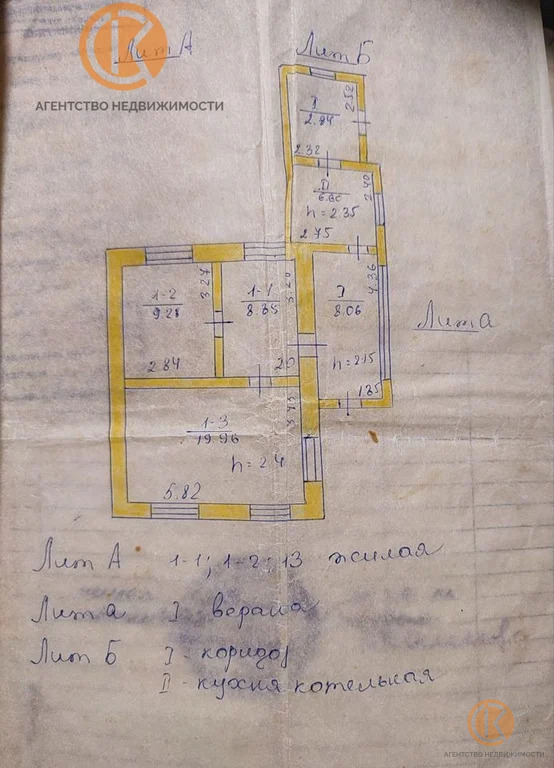 Лит А
Лит Б
АГЕНТСТВО НЕДВИЖИМОСТИ
I
2.94
2.52
2.32
II
6.60
h = 2.35
2.40
2.75
1-2
9.28
3.27
2.84
1-1
8.35
I
8.06
4.36
h = 2.15
1.85
Лит а
1-3
19.96
3.43
h = 2.4
5.82
Лит А 1-1; 1-2; 13 жилая
Лит а I верана
Лит Б I - коридор
II - кухня котельная
АГЕНТСТВО НЕДВИЖИМОСТИ